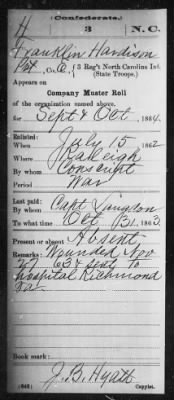 (Confederate.)
H 3 N.C.
Franklin Hardison
Pvt, Co. A, 3 Reg't North Carolina Inf.
(State Troops.)
Appears on
Company Muster Roll
of the organization named above,
for Sept & Oct, 1864.
Enlisted:
When July 15, 1862
Where Raleigh
By whom Conscript
Period War
Last paid:
By whom Capt Langdon
To what time Oct 31, 1863.
Present or absent Absent
Remarks: Wounded Nov
27 63 & sent to
hospital Richmond
Va
Book mark:
J. B. Hyatt
(642) Copyist.